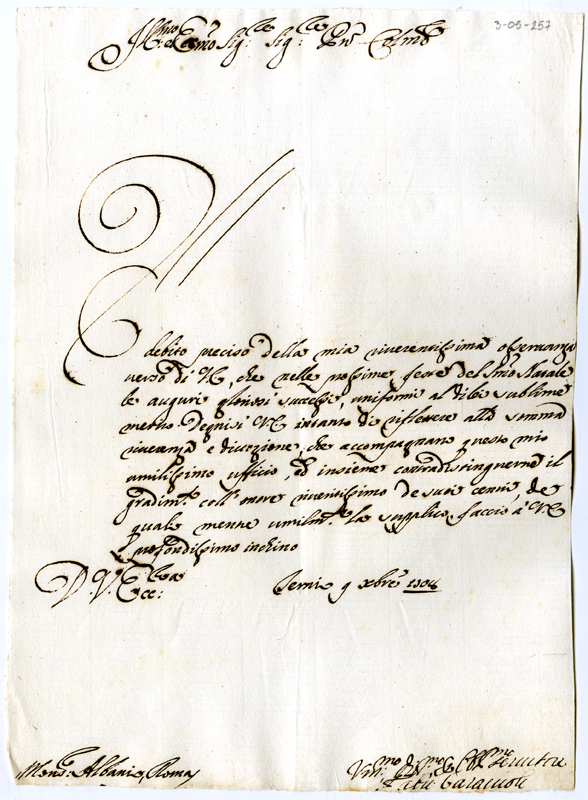 3-05-257
Ill.mo et Ecc.mo Sig.re Sig.re P.ron Col.mo
È debito preciso della mia riverentissima osservanza
verso di V.E., che nelle prossime feste del S.mo Natale
le auguri gloriosi successi, uniformi al di lei sublime
merito. Degnisi V.E. intanto di riflettere alla somma
riverenza e divozione, che accompagnano questo mio
umilissimo ufficio, ed insieme contradistinguerne il
gradim.to coll'onore riveritissimo de suoi cenni, de
quali mentre umilm.te la supplico, faccio a V.E.
profondissimo inchino
D. V. Ecc.za
9 xbre
Mons.r Albani, Roma
Um.mo Servitore